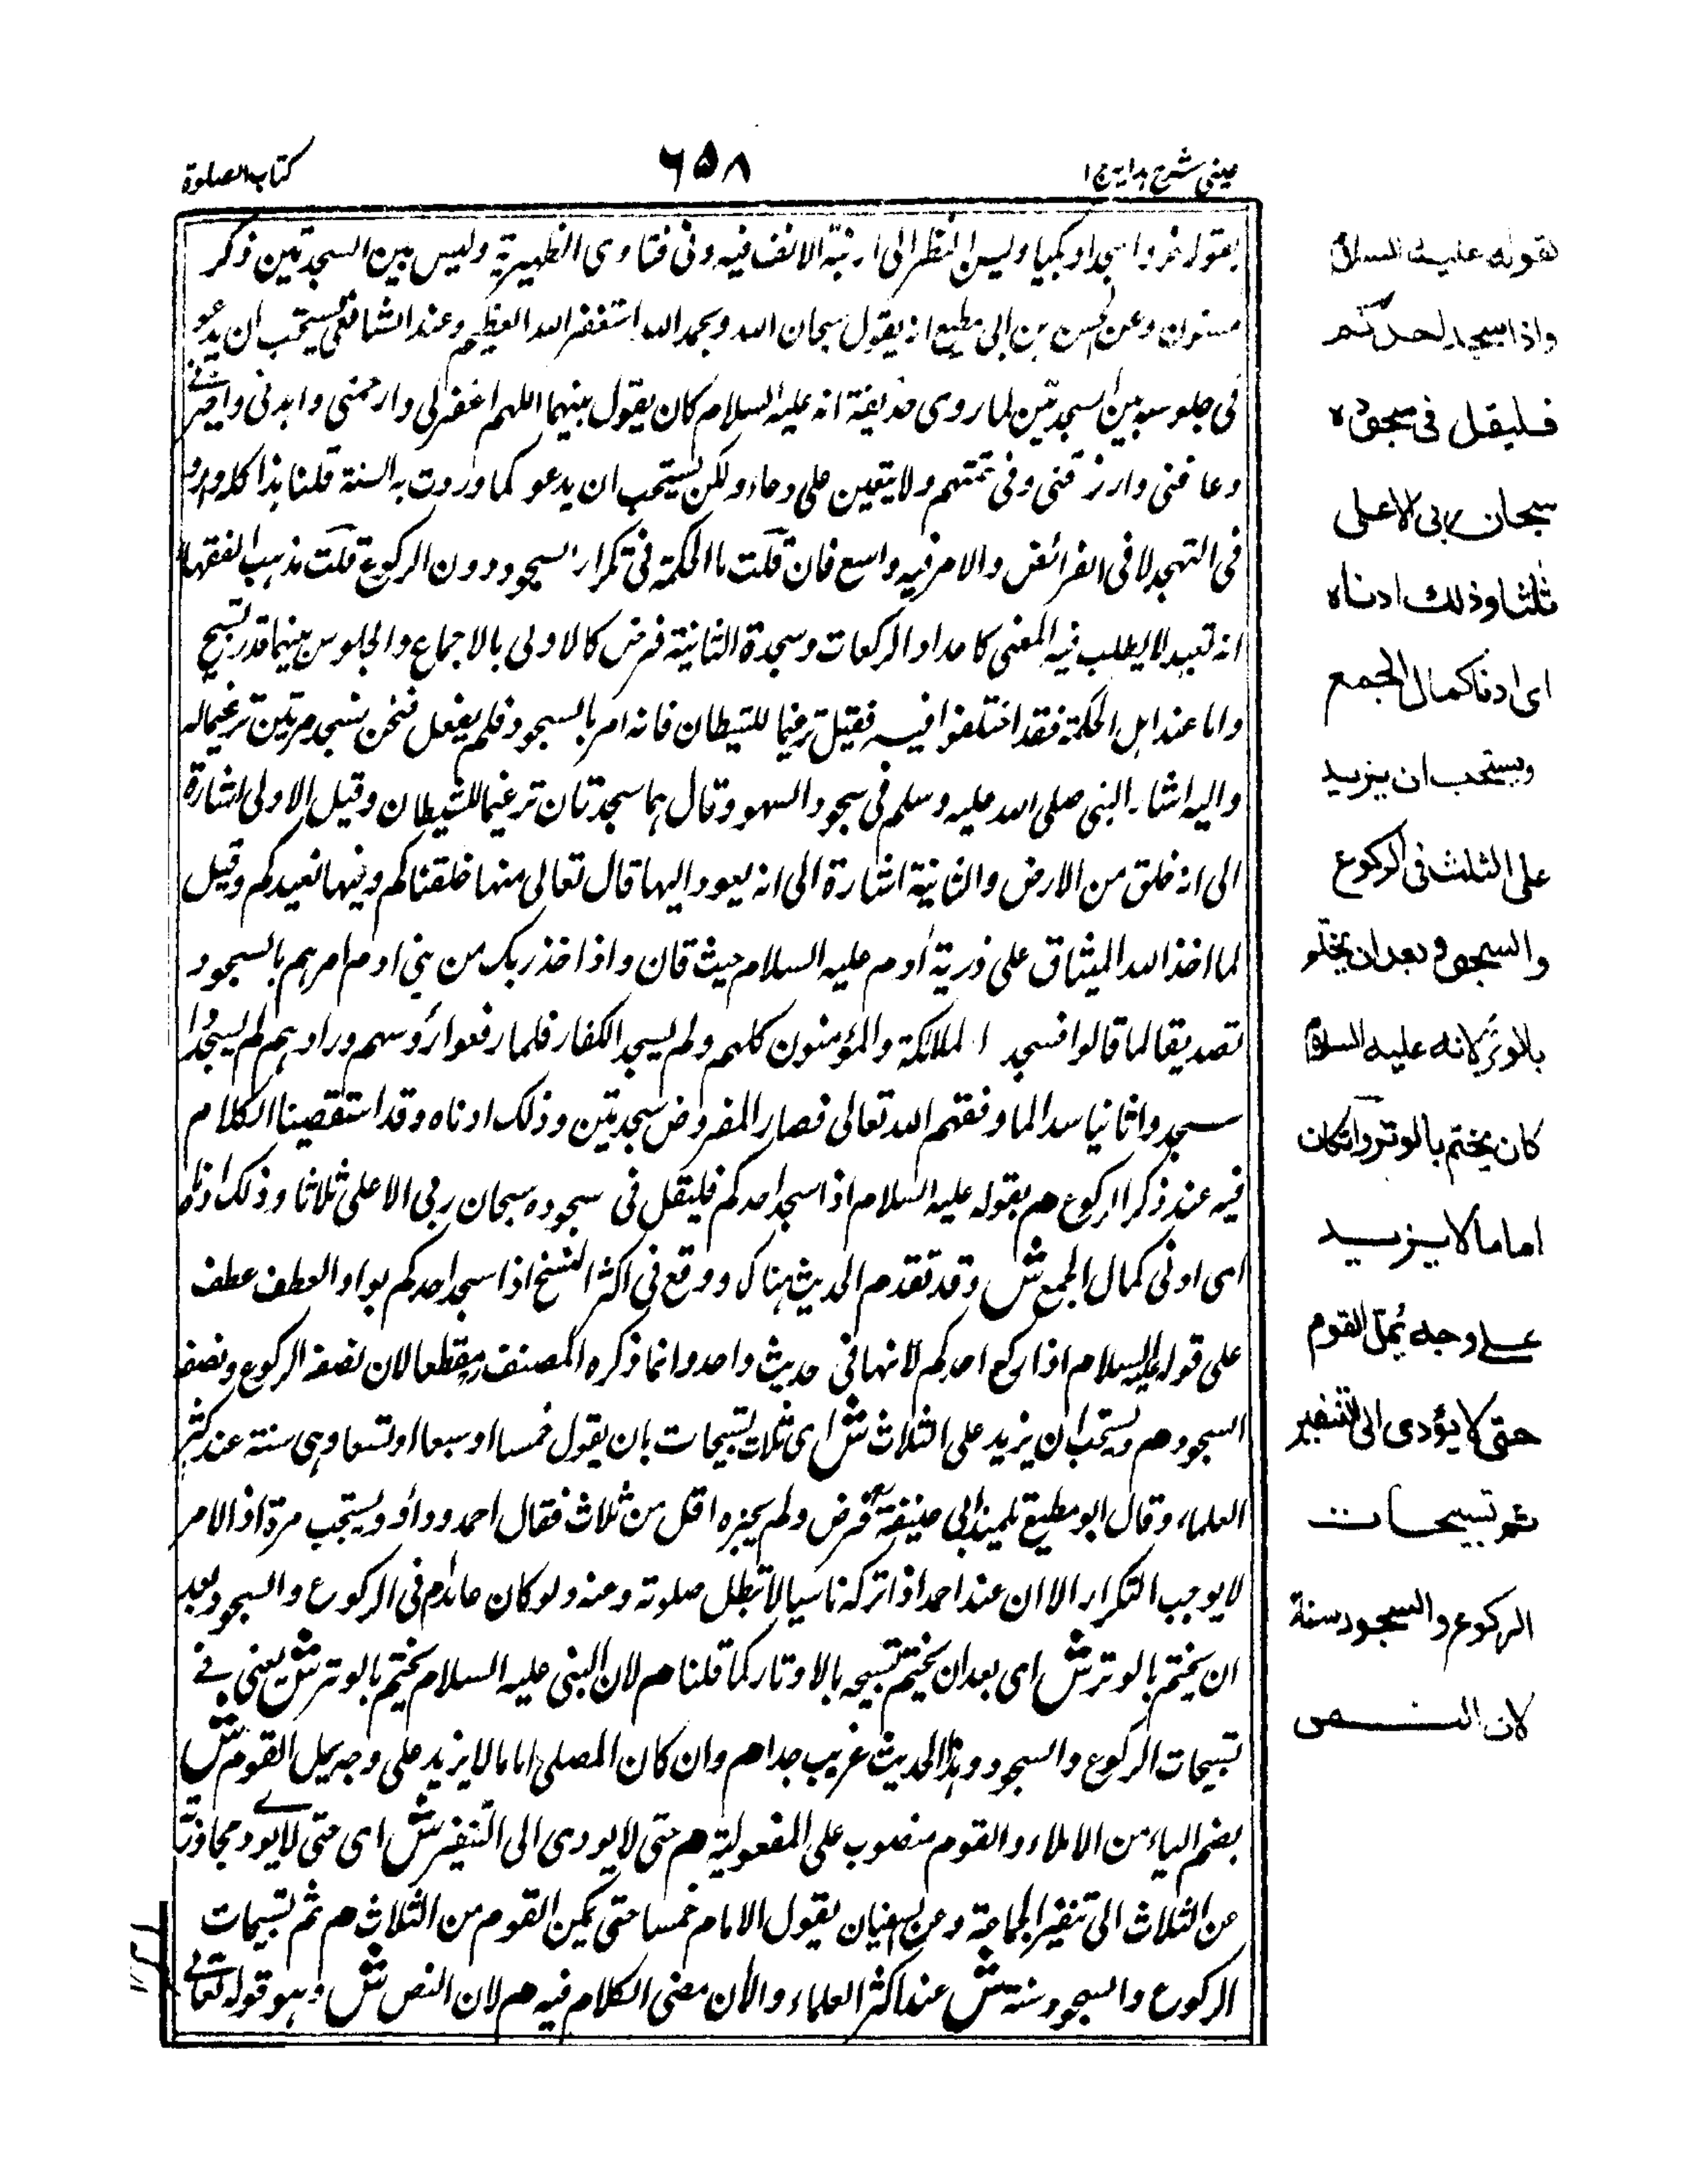 عینی شرح ہدایہ ج ا
٦٥٨
کتاب الصلوة
بقوله خروا سجدا وبكيا وليس النظر الى ارنبة الانف فيه وفى فتاوى الظهيرية وليس بين السجدتين ذكر
مسنون وعن الحسن بن ابى مطيع انه يقول سبحان الله وبحمد الله استغفر الله العظيم وعند الشافعى يستحب ان يدعو
فى جلوسه بين السجدتين لما روى حذيفة انه عليه السلام كان يقول بينهما اللهم اغفر لى وارحمنى واهدنى واجبرنى
وعافنى وارزقنى وفى تتمتهم ولا يتعين على دعاء ولكن يستحب ان يدعو كما وردت به السنة قلنا هذا كله ورد
فى التهجد لا فى الفرائض والامر فيه واسع فان قلت ما الحكمة فى تكرار السجود دون الركوع قلت مذهب الفقهاء
انه تعبد لا يطلب فيه المعنى كاعداد الركعات وسجدة الثانية فرض كالاولى بالاجماع والجلوس بينهما قدر تسبيح
واما عند اهل الحكمة فقد اختلفوا فيه فقيل ترغيما للشيطان فانه امر بالسجود فلم يفعل فنحن نسجد مرتين ترغيما له
واليه اشار النبى صلى الله عليه وسلم فى سجود السهو وقال هما سجدتان ترغيما للشيطان وقيل الاولى اشارة
الى انه خلق من الارض والثانية اشارة الى انه يعود اليها قال تعالى منها خلقناكم وفيها نعيدكم وقيل
لما اخذ الله الميثاق على ذرية آدم عليه السلام حيث قال واذ اخذ ربك من بنى ادم امرهم بالسجود
تصديقا لما قالوا فسجد الملائكة والمؤمنون كلهم ولم يسجد الكفار فلما رفعوا رؤسهم وراوهم لم يسجدوا
سجدوا ثانيا لما وفقهم الله تعالى فصار المفروض سجدتين وذلك ادناه وقد استقصينا الكلام
فيه عند ذكر الركوع هم بقوله عليه السلام اذا سجد احدكم فليقل فى سجوده سبحان ربى الاعلى ثلاثا وذلك ادناه
اى ادنى كمال الجمع ش وقد تقدم الحديث هناك ووقع فى اكثر النسخ اذا سجد احدكم بواو العطف عطف
على قوله عليه السلام اذا ركع احدكم لانهما فى حديث واحد وانما ذكره المصنف مقطعا لان نصفه الركوع ونصفه
السجود هم ويستحب ان يزيد على الثلاث ش اى ثلاث تسبيحات بان يقول خمسا او سبعا او تسعا وهى سنة عند اكثر
العلماء وقال ابو مطيع تلميذ ابى حنيفة فرض ولم يجزه اقل من ثلاث فقال احمد وداؤد ويستجب مرة اذ الامر
لا يوجب التكرار الا ان عند احمد اذا تركه ناسيا لا تبطل صلوته وعنه ولو كان عامدا هم فى الركوع والسجود بعد
ان يختم بالوتر ش اى بعد ان يختم تسبيحه بالاوتار كما قلنا هم لان النبى عليه السلام يختم بالوتر ش يعنى فى
تسبيحات الركوع والسجود وهذا الحديث غريب جدا هم وان كان المصلى اماما لا يزيد على وجه يمل القوم ش
بضم الياء من الاملاء والقوم منصوب على المفعولية هم حتى لا يودى الى التنفير ش اى حتى لا يود مجاوزته
عن الثلاث الى تنفير الجماعة وعن سفيان يقول الامام خمسا حتى يمكن القوم من الثلاث هم ثم تسبيحات
الركوع والسجود سنة ش عند اكثر العلماء والأن مضى الكلام فيه هم لان النص ش وهو قوله تعالى
لقوله عليه السلام
واذا سجد احدكم
فليقل فى سجوده
سبحان ربى الاعلى
ثلثا وذلك ادناه
اى ادنا كمال الجمع
ويستحب ان يزيد
على الثلث فى الركوع
والسجود بعد ان يختم
بالوتر لانه عليه السلام
كان يختم بالوتر وانكان
اماما لا يزيد
على وجه يمل القوم
حتى لا يؤدى الى التنفير
ثم تسبيحات
الركوع والسجود سنة
لان النص